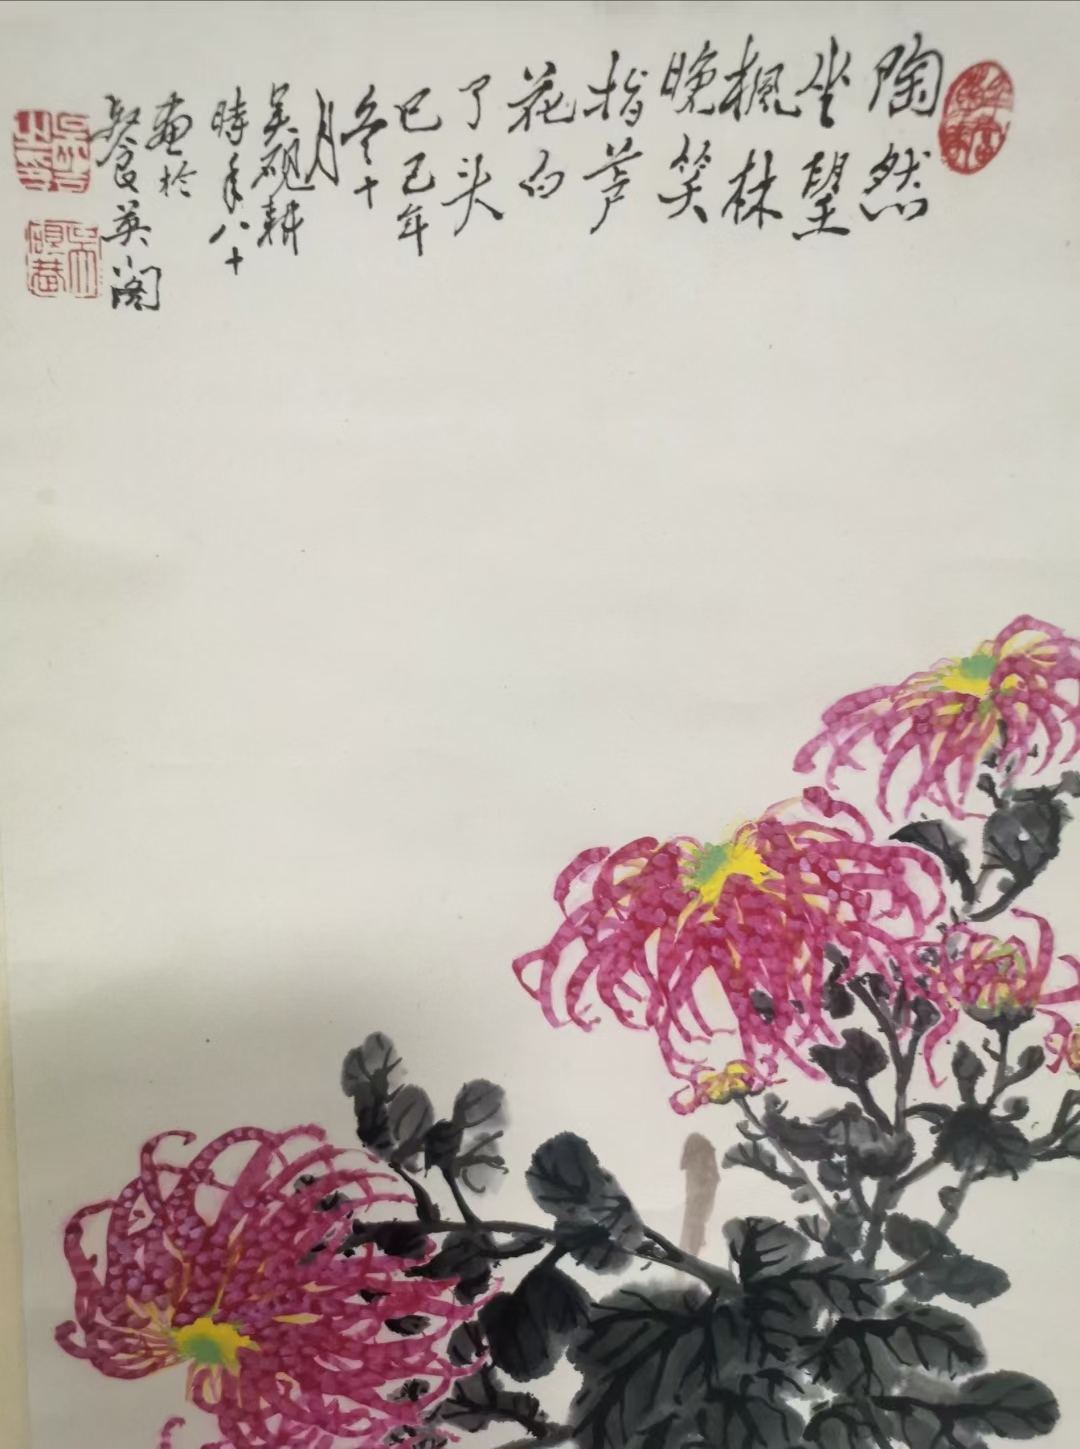 陶然
坐望
枫林
晚笑
指芦
花白
了头
己巳年
冬十
月
吴砚耕
时年八十
画於
聚英阁